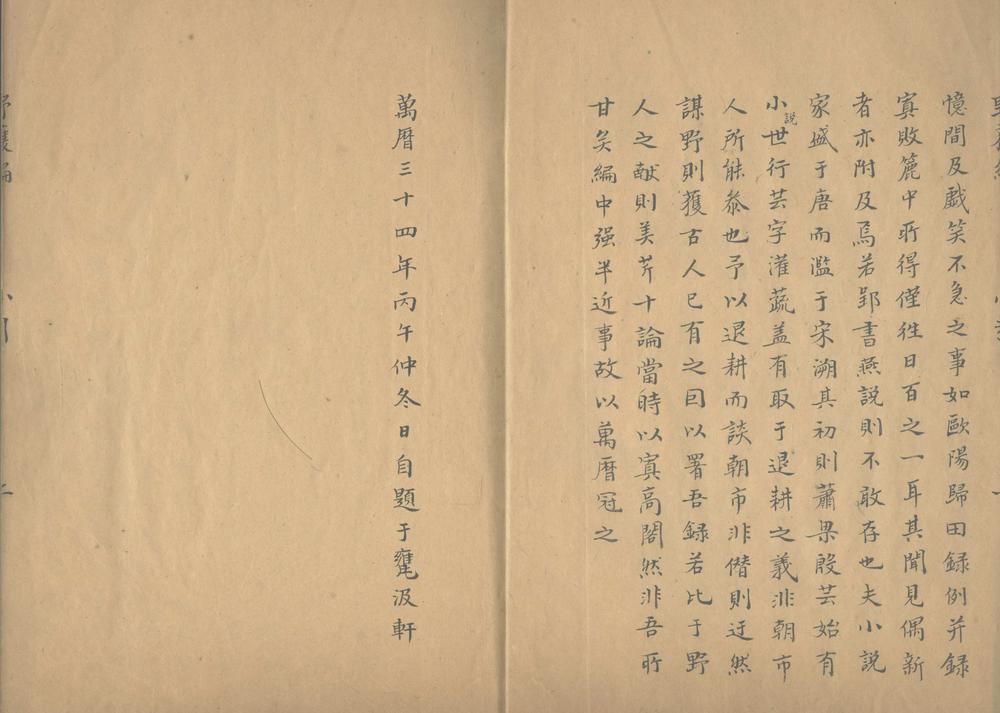 憶間及戱笑不急之事如歐陽歸田録例并録
寘敗簏中所得僅徃日百之一耳其聞見偶新
者亦附及焉若郢書燕説則不敢存也夫小説
家盛于唐而濫于宋溯其初則蕭梁殷芸始有
小説世行芸字灌蔬盖有取于退耕之義非朝市
人所能叅也予以退耕而談朝市非僭則迂然
謀野則獲古人已有之因以署吾録若比于野
人之献則美芹十論當時以寘高閣然非吾所
甘矣編中强半近事故以萬暦冠之
萬暦三十四年丙午仲冬日自題于甕汲軒